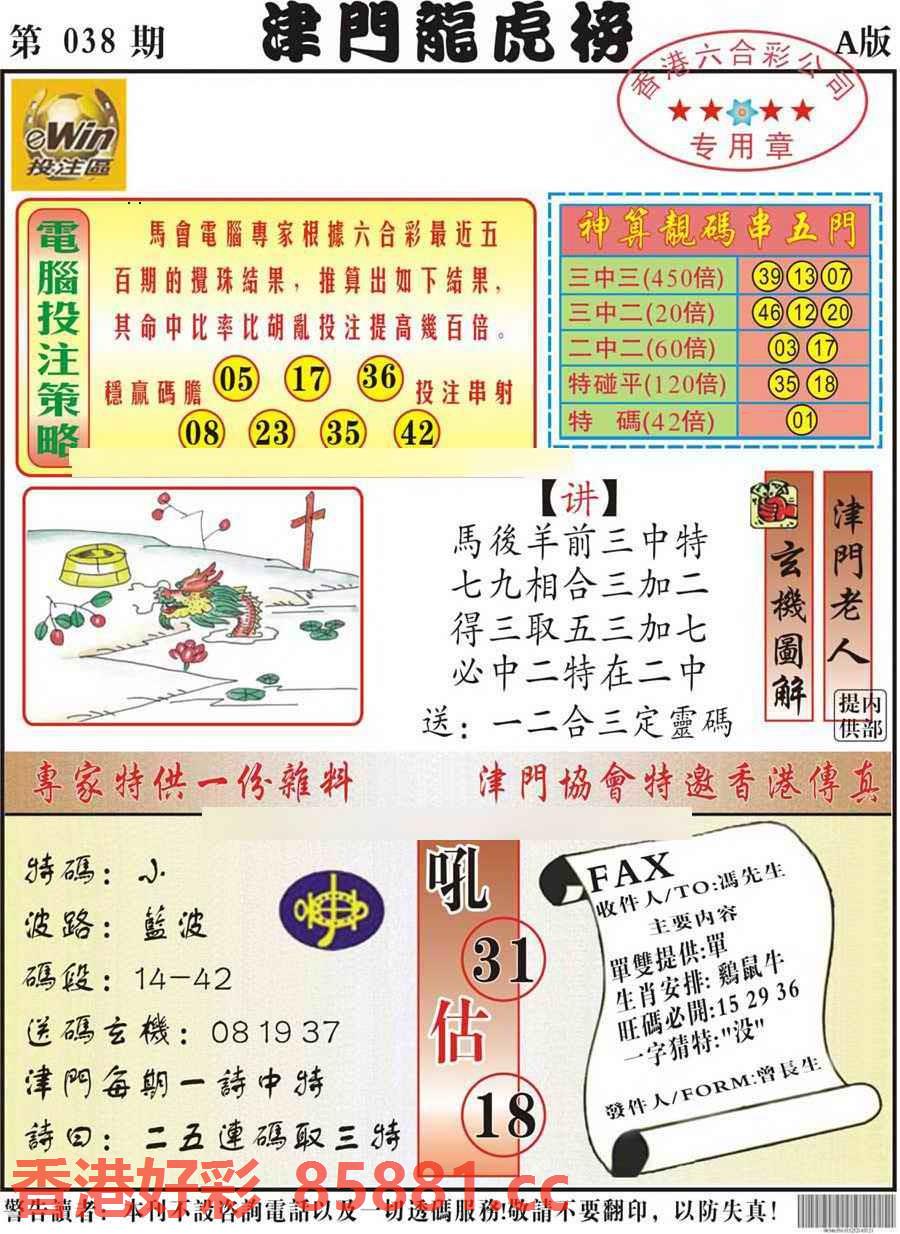 第 038 期
津門龍虎榜
A版
香港六合彩公司
专用章
eWin
投注區
電腦投注策略
馬會電腦專家根據六合彩最近五
百期的攪珠結果，推算出如下結果，
其命中比率比胡亂投注提高幾百倍。
穩贏碼膽 05 17 36 投注串射
08 23 35 42
神算靚碼串五門
三中三(450倍) 39 13 07
三中二(20倍) 46 12 20
二中二(60倍) 03 17
特碰平(120倍) 35 18
特 碼(42倍) 01
【讲】
馬後羊前三中特
七九相合三加二
得三取五三加七
必中二特在二中
送：一二合三定靈碼
玄機圖解
津門老人
内部
提供
專家特供一份雜料
津門協會特邀香港傳真
特碼：小
波路：藍波
碼段：14-42
送碼玄機：08 19 37
津門每期一詩中特
詩曰：二五連碼取三特
吼
31
估
18
FAX
收件人/TO:馮先生
主要内容
單雙提供:單
生肖安排: 鷄鼠牛
旺碼必開:15 29 36
一字猜特:"没"
發件人/FORM:曾長生
香港好彩 85881.cc
警告讀者：本刊不設咨詢電話以及一切透碼服務!敬請不要翻印，以防失真!